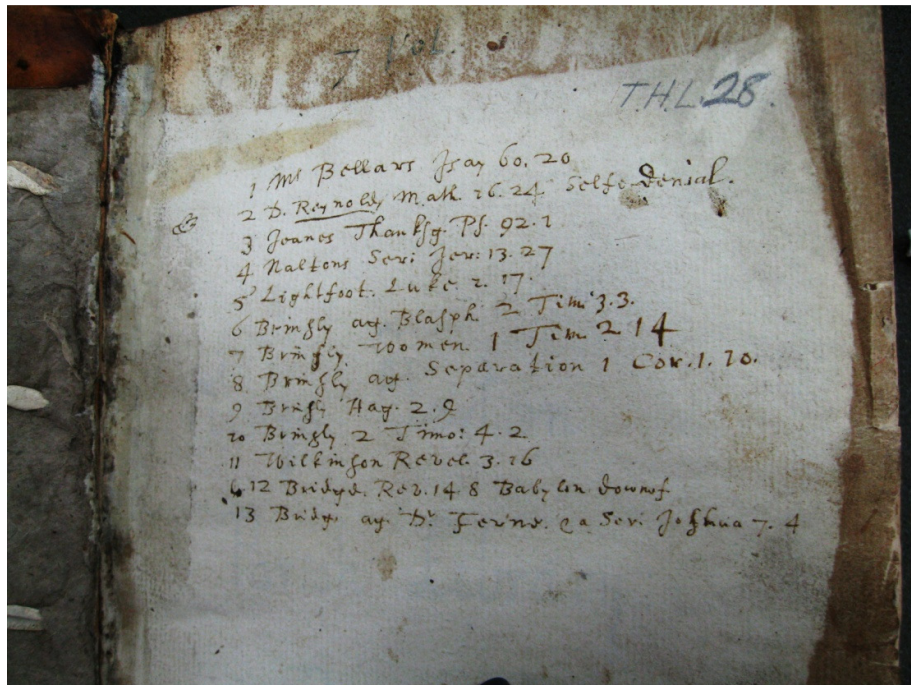 7 Vol.
T.H.L. 28.
1 Mr Bellars Jsay 60. 20
2 D. Reynolds Math. 16. 24 Selfe-denial.
3 Jeanes Thanksg. Ps. 92. 1
4 Naltons Ser: Jer: 13. 27
5 Lightfoot. Luke. 1. 17.
6 Brinsly ag. Blasph 2 Tim: 3. 3.
7 Brinsly Women. 1 Tim 2 14
8 Brinsly ag. Separation 1 Cor. 1. 10.
9 Brinsly Hag. 2. 9
10 Brinsly 2 Timo: 4. 2
11 Wilkinson Revel. 3. 16
12 Bridge. Rev. 14. 8 Babylon
13 Bridg. ag. Dr. Ferne. & a Ser: Joshua 7. 4